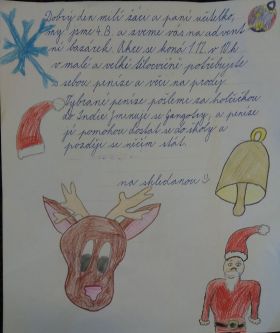 Dobrý den milí žáci a paní učitelko,
my jsme 4.B a zveme vás na advent
ní bazárek. Akce se koná 1.12. v 10 h.
v malé a velké tělocvičně potřebujete
sebou peníze a věci na prodej
Vybrané peníze pošleme za holčičkou
do Indie Jmenuje se Gangotry, a peníze
jí pomohou dostat se do školy a
později se něčím stát.
na shledanou